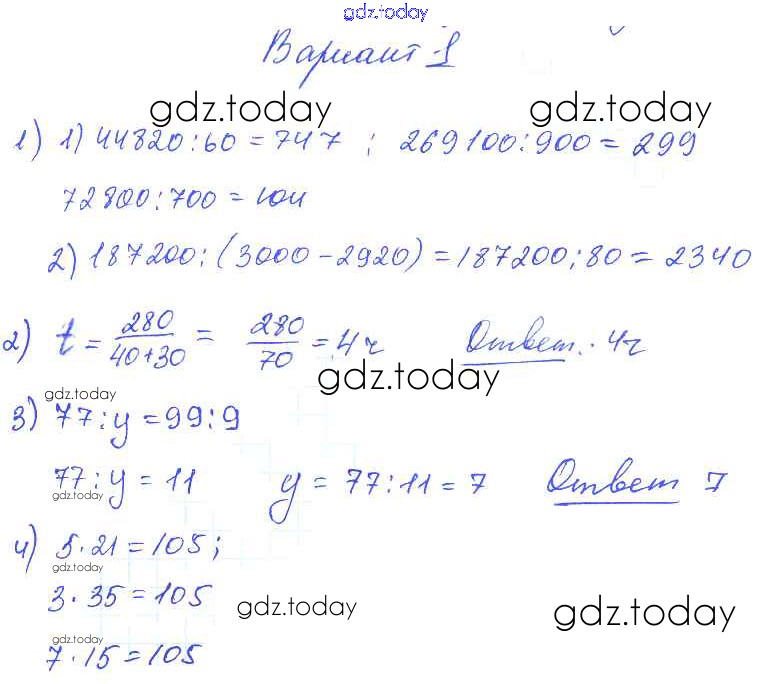 gdz.today
Вариант 1
gdz.today gdz.today
1) 1) 44820:60=747 ; 269100:900=299
72800:700=104
2) 187200:(3000-2920)=187200:80=2340
2) t = 280/40+30 = 280/70 = 4ч Ответ: 4ч
gdz.today gdz.today
3) 77:y=99:9
77:y=11 y=77:11=7 Ответ 7
gdz.today
4) 5·21=105;
gdz.today
3·35=105
gdz.today gdz.today
gdz.today
7·15=105